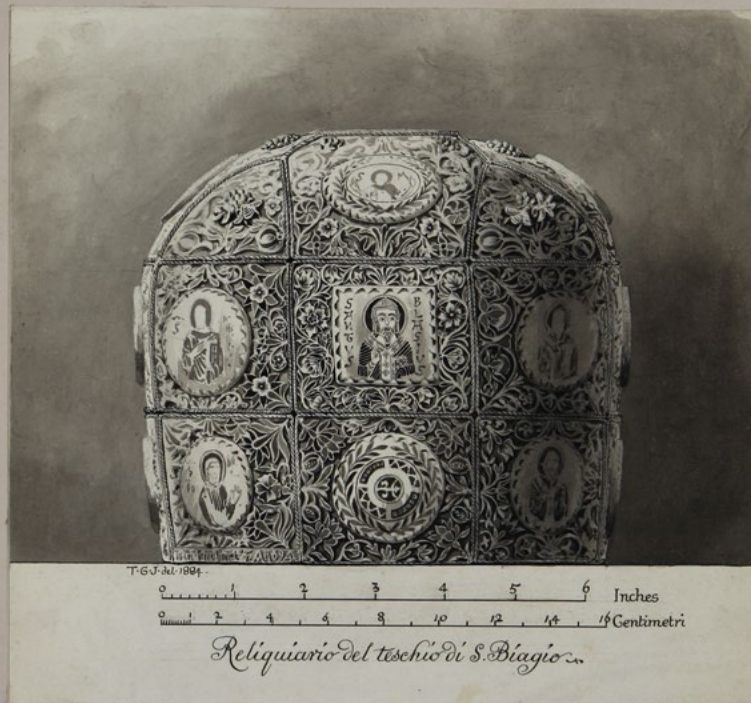 S M
S
SANCTVS BLASIVS
T·G·J·del·1884·
0 1 2 3 4 5 6 Inches
0 1 2 4 6 8 10 12 14 16 Centimetri
Reliquiario del teschio di S. Biagio